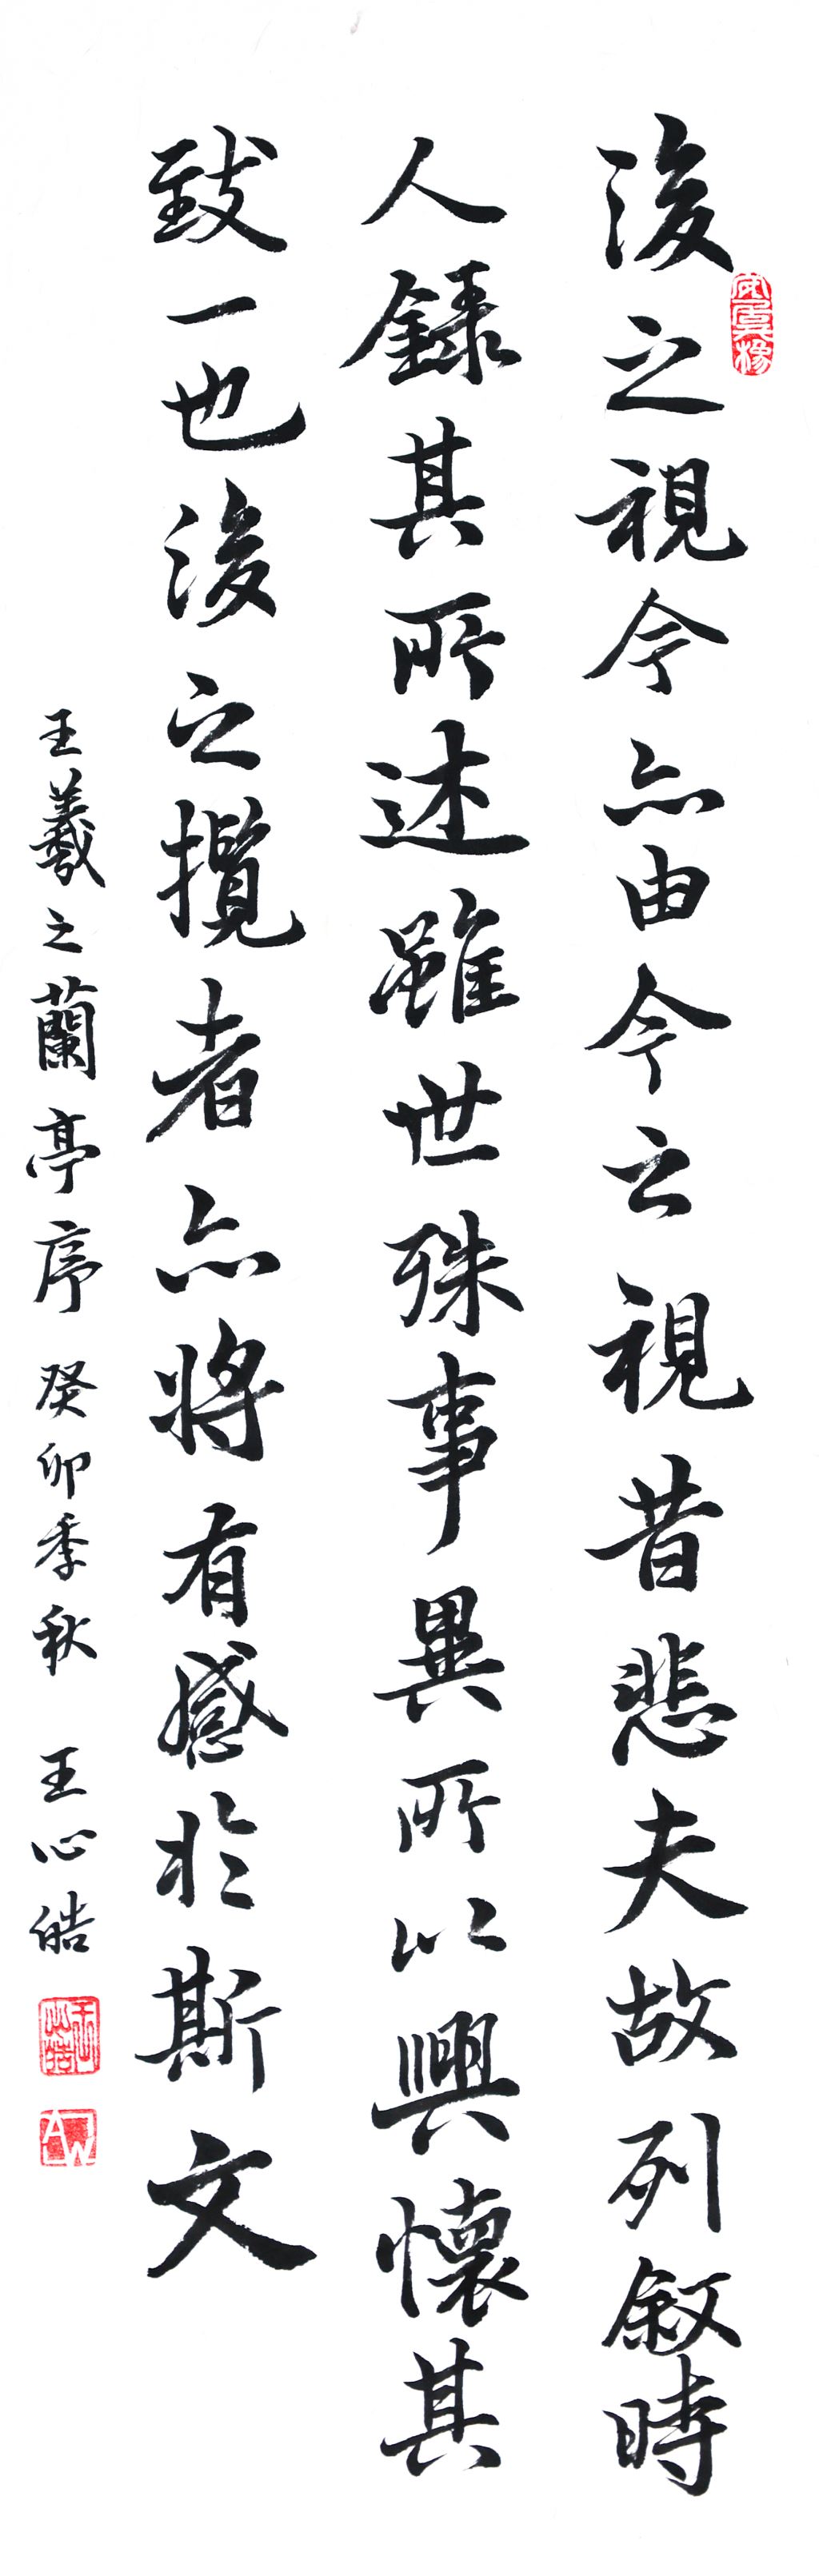 後之視今亦由今之視昔悲夫故列敘時
人錄其所述雖世殊事異所以興懷其
致一也後之攬者亦將有感於斯文
王羲之蘭亭序 癸卯季秋 王心皓
王心皓